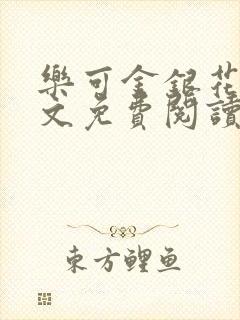 樂可金銀花
文免費閱讀
東方鯉魚